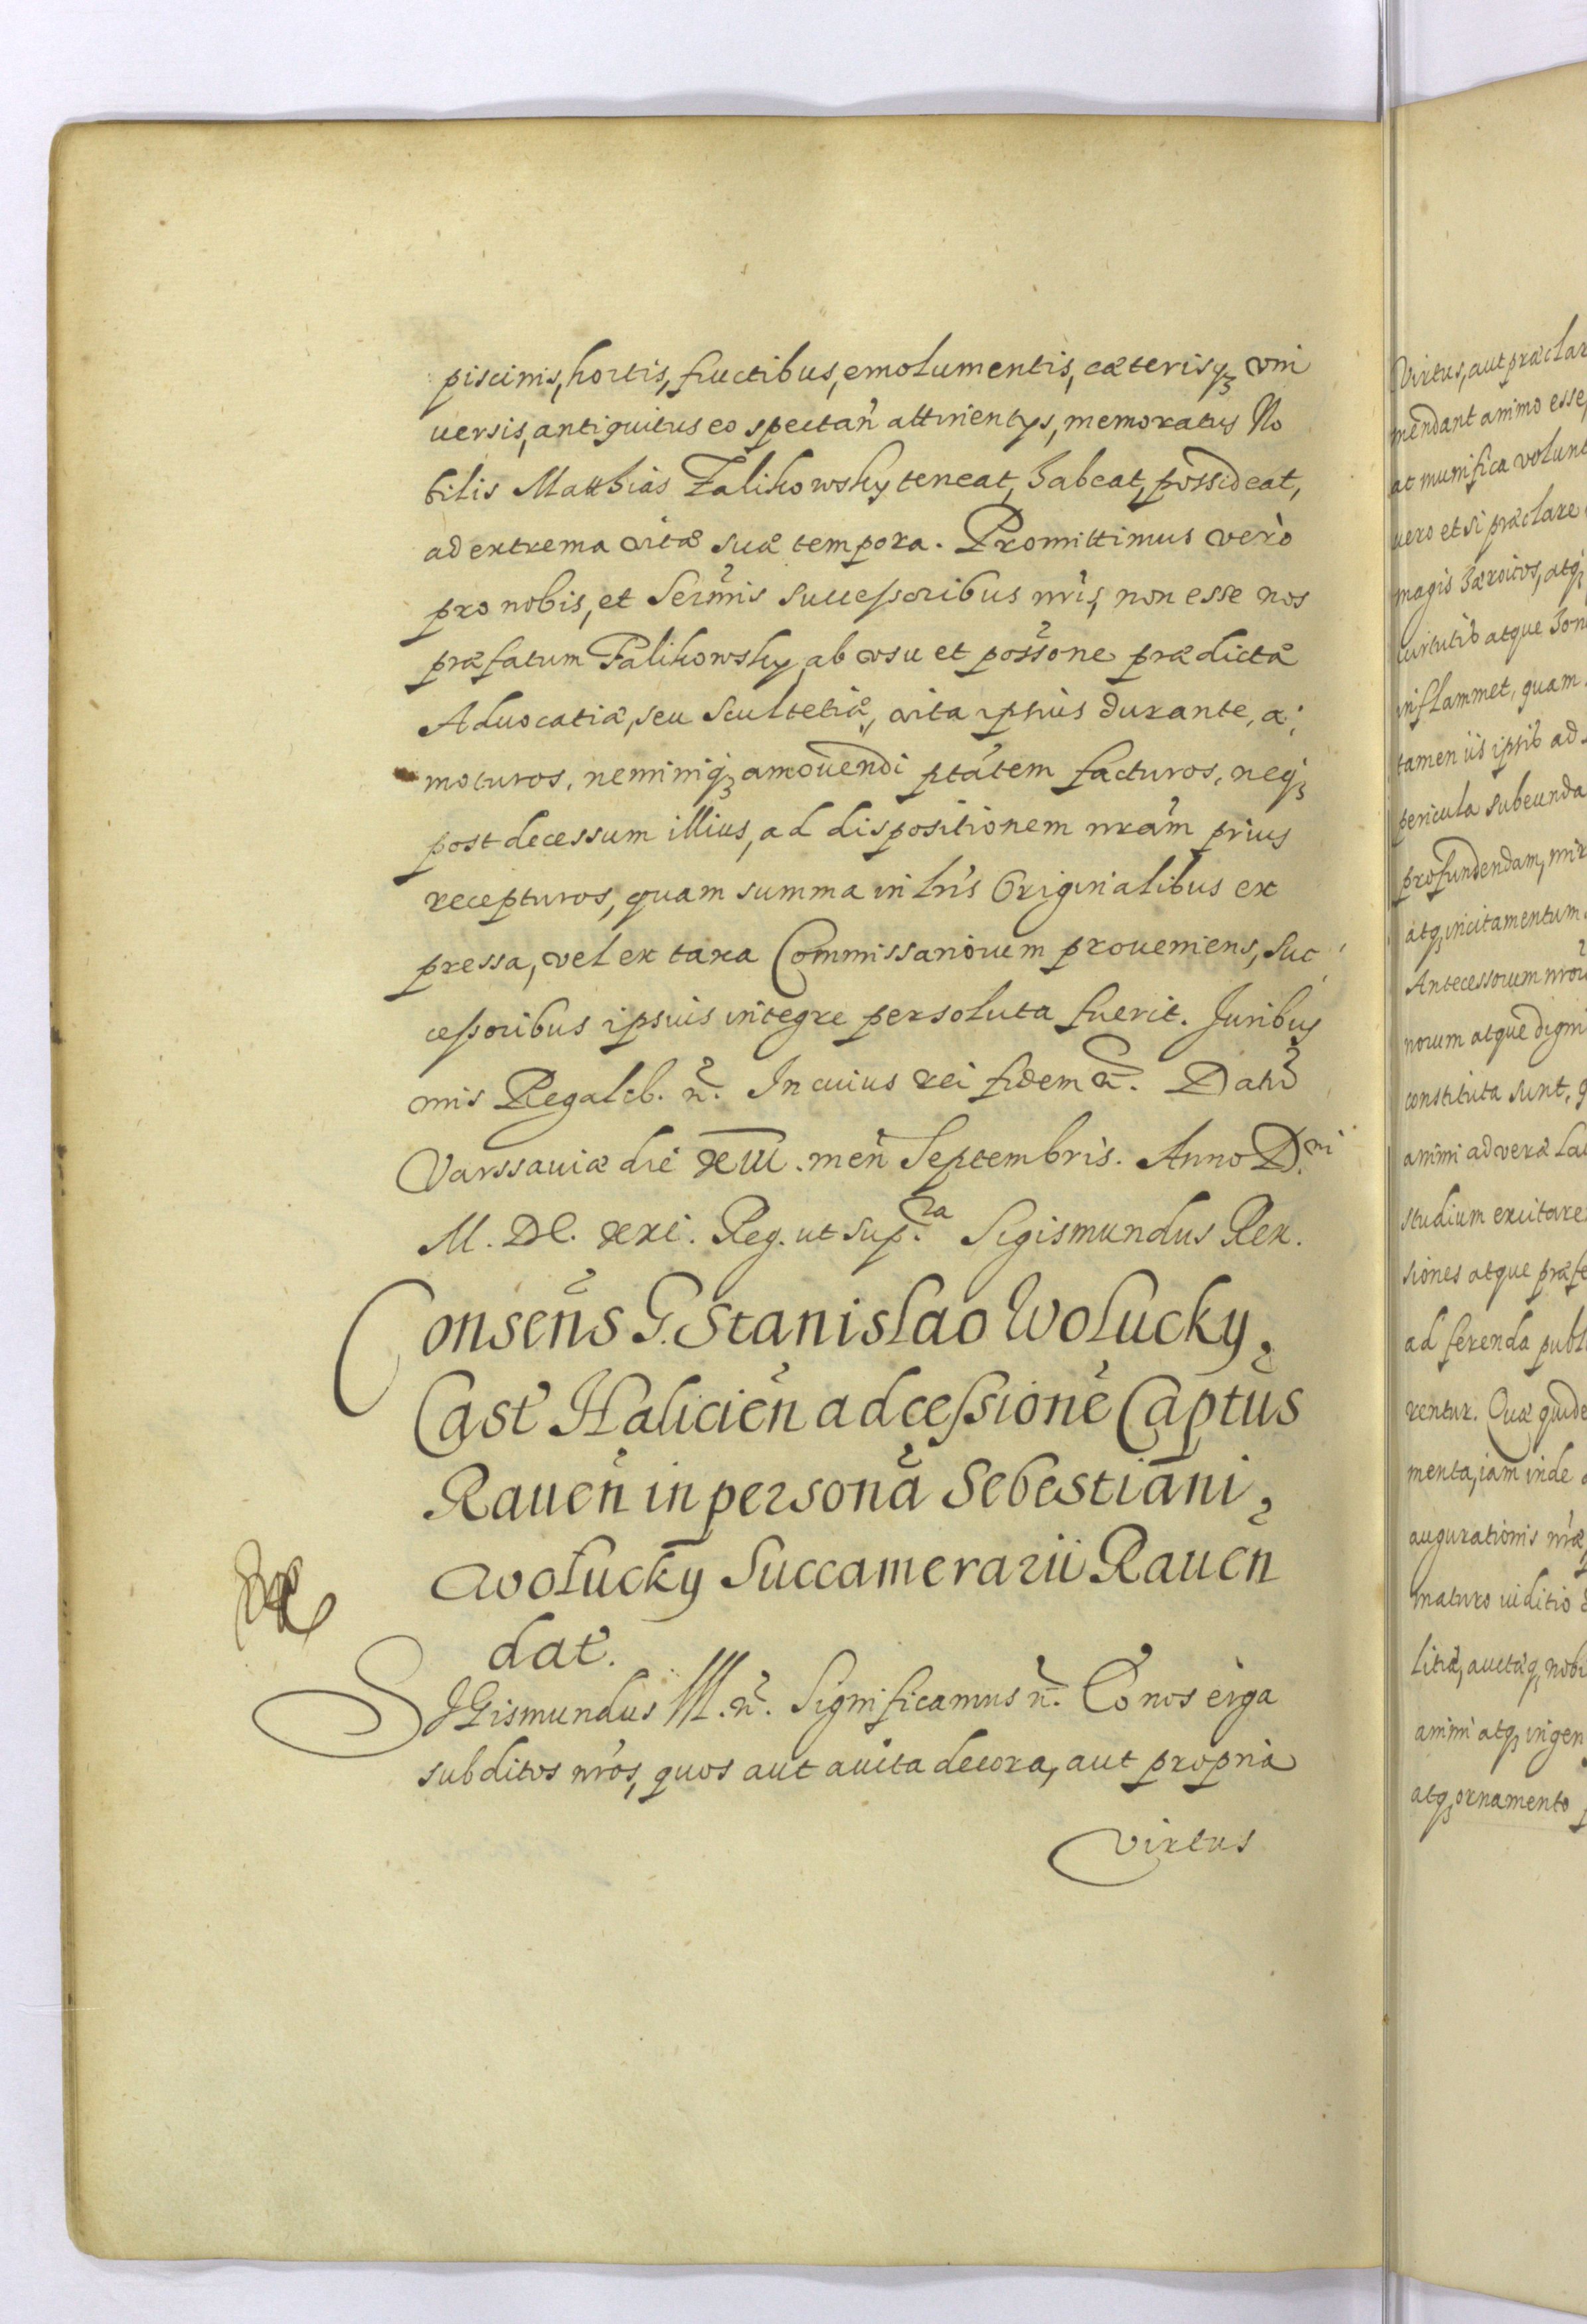 piscinis, hortis, fructibus, emolumentis, cæterisqȝ vni
uersis, antiquitus eo spectan̄ attinentys, memoratus No
bilis Matthias Falikowsky teneat, habeat, possideat,
ad extrema vitæ suæ tempora. Promittimus verò
pro nobis, et Serm̄is successoribus nr̄is, non esse nos
præfatum Falikowsky ab vsu et poss̄one prædictæ
Aduocatiæ, seu Scultetiæ, vita ipsius durante, a:
moturos, neminiqȝ amouendi ptātem facturos, neqȝ
post decessum illius, ad dispositionem nrām prius
recepturos, quam summa in lrīs Originalibus ex
pressa, vel ex taxa Commissariorum proueniens, suc
cessoribus ipsius integre persoluta fuerit. Juribus
nr̄is Regalib. n̄. In cuius rei fidem n̄. Datū
Varssauiæ die XIII. men̄ Septembris. Anno D.ni
M. DC. XXI. Reg. ut sup.ra Sigismundus Rex.
Consen̄s G. Stanislao Wolucky,
Cast̄ Halicien̄ ad cessionē Captūs
Rauen̄ in personā Sebestiani,
Wolucky Succamerarii Rauen̄
dat̄.
SIGismundus III. n̄. Significamus n̄. Eo nos erga
subditos nr̄os, quos aut auita decora, aut propria
virtus
Virtus, aut præclar
mendant animo esse
at munifica volunt
uero etsi præclare
magis hæroicos, atqȝ
uirtutib atque hon
inflammet, quam
tamen iis ipsib ad
pericula subeunda
profundendam, mir
atqȝ incitamentum
Antecessorum nrōr
norum atque digni
constituta sunt, q
animi ad veræ lau
studium excitare
siones atque præfe
ad ferenda publ
rentur. Quæ quide
menta, iam inde
augurationis nr̄æ,
maturo iuditio
litiæ, auctaqȝ nobi
animi atqȝ ingen
atqȝ ornamento p